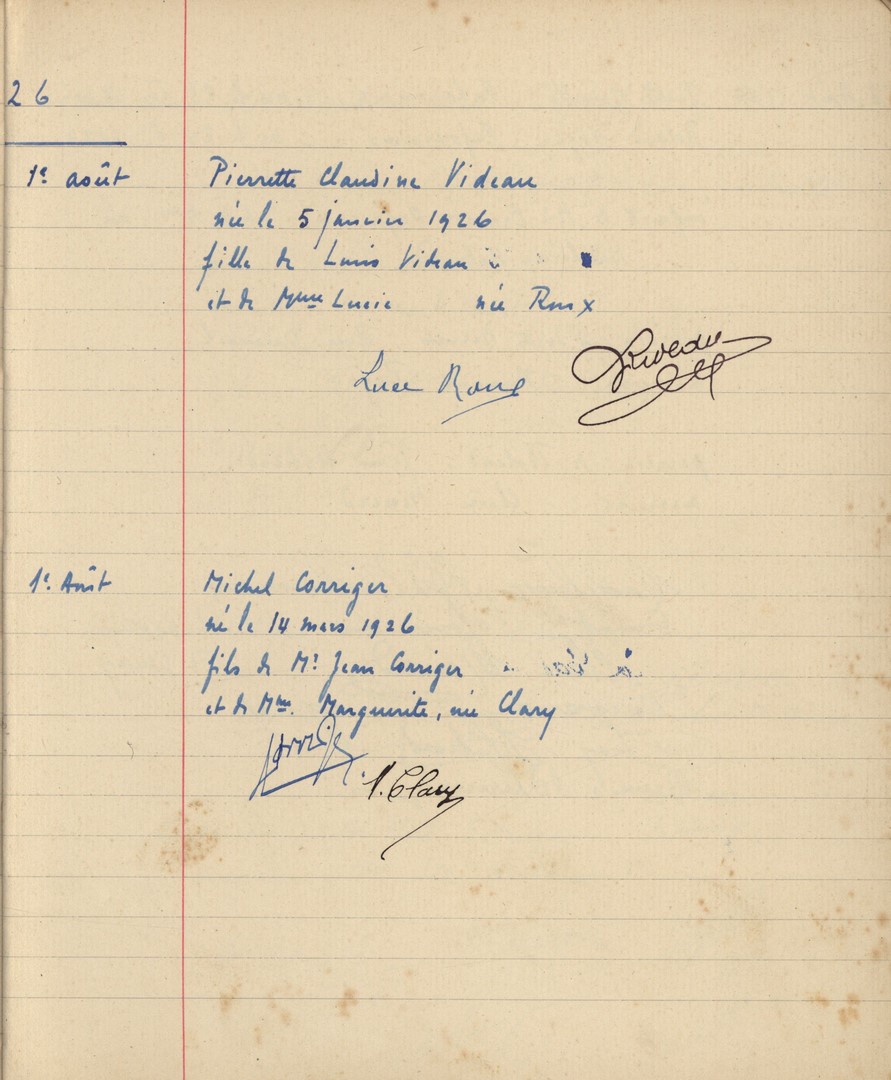 26
1e. août
Pierrette Claudine Videau
née le 5 janvier 1926
fille de Louis Videau
et de Mme Lucie née Roux
Luce Roux
1e. Août
Michel Corriger
né le 14 mars 1926
fils de Mr. Jean Corriger
et de Mme. Marguerite, née Clary
Clary